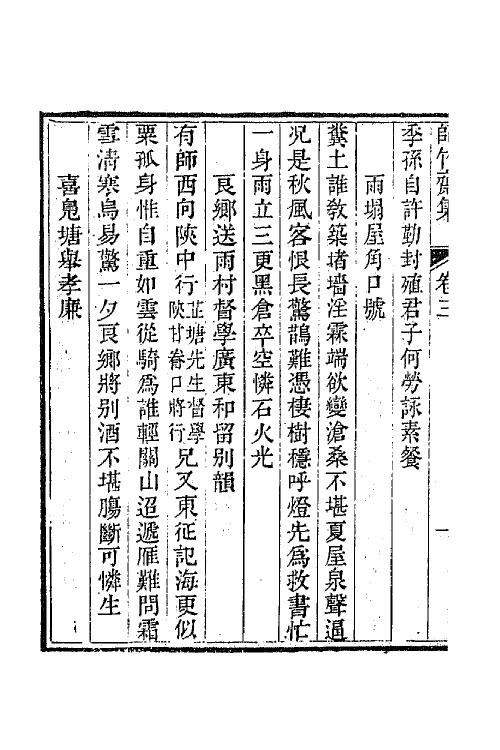 師竹齋集 卷三 一
季孫自許勤封殖君子何勞詠素餐
雨塌屋角口號
糞土誰教築堵墻淫霖端欲變滄桑不堪夏屋泉聲逼
況是秋風客恨長驚鵲難憑棲樹穩呼燈先爲救書忙
一身雨立三更黑倉卒空憐石火光
良鄉送雨村督學廣東和留別韻
有師西向陝中行芷塘先生督學陝甘眷口將行兄又東征記海更似
粟孤身惟自重如雲從騎爲誰輕關山迢遞雁難問霜
雪淸寒烏易驚一夕良鄉將別酒不堪腸斷可憐生
喜鳧塘舉孝廉